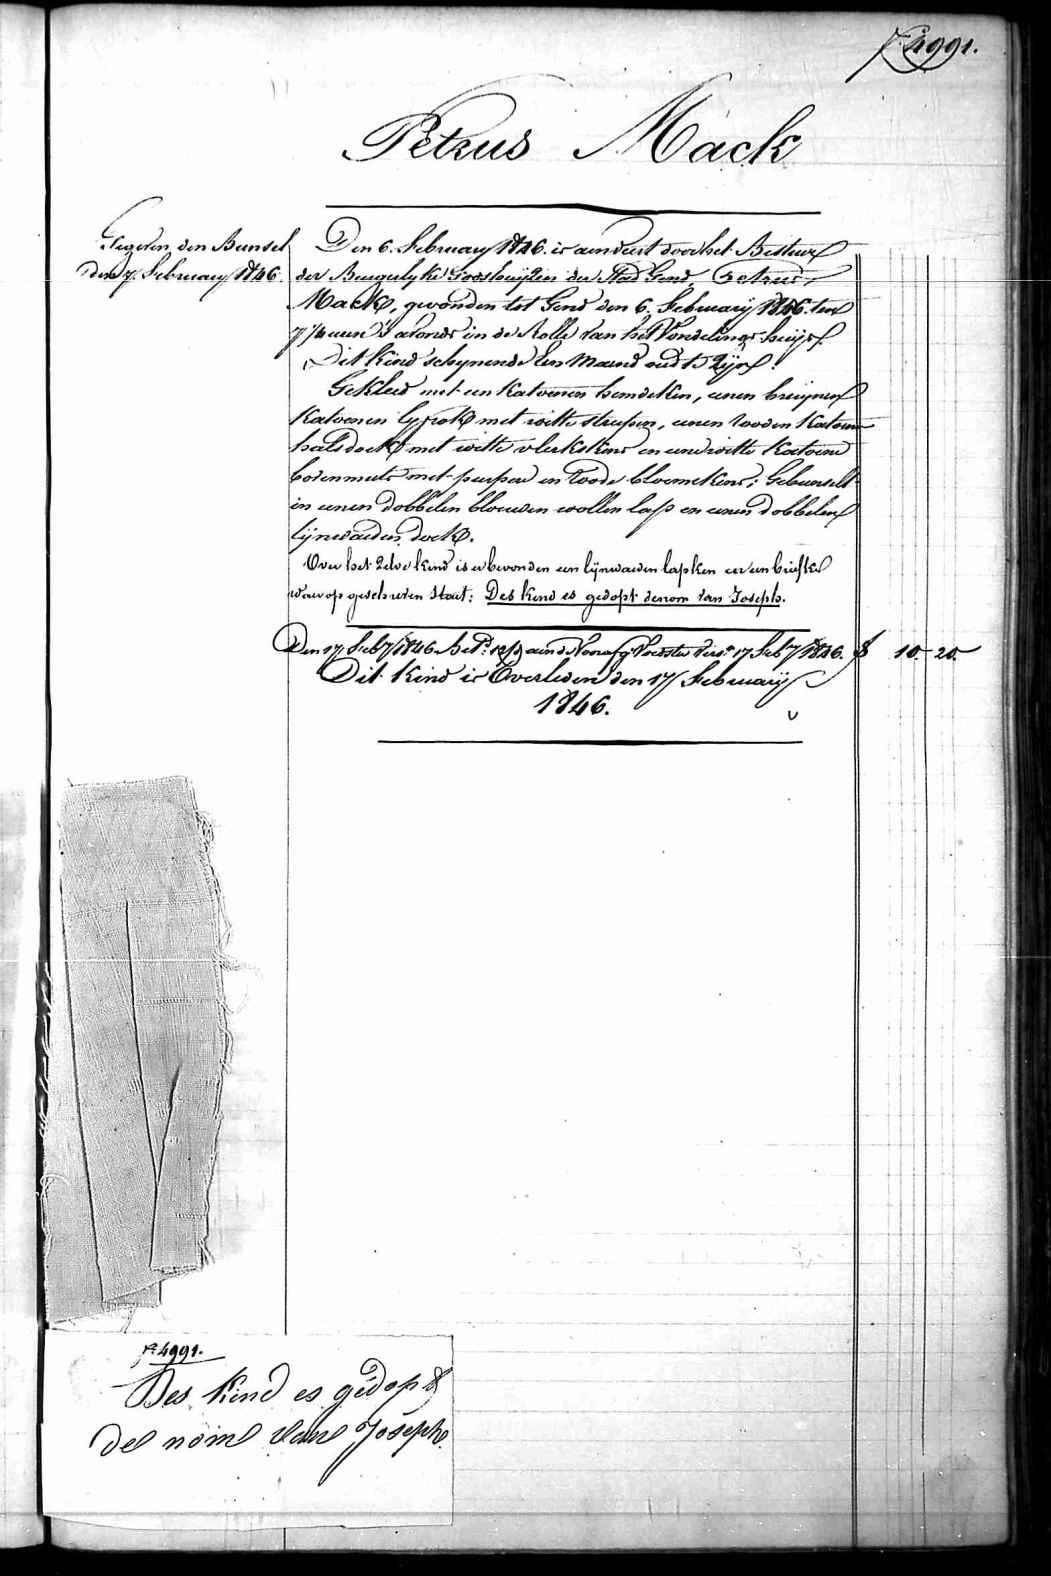 f° 4991.
Petrus Mack
Gegeven den Bunsel
den 7. February 1846.
Den 6. February 1846. is aenveert door het Bestuer
der Burgerlyke Godshuijzen der Stad Gend, Petrus
Mack, gevonden tot Gend den 6. February 1846. ten
7 1/4 uren 's avonds in de Rolle van het Vondelings-huijs.
Dit kind schynende een maend oud te zijn.
Gekleed met een katoenen hemdeken, eenen bruynen
katoenen lyfrok met witte streepen, eenen rooden katoenen
halsdoek met witte vlekskens en eene witte katoene
bovenmuts met purpere en roode bloemekens; Gebunselt
in eenen dobbelen blouwen wollen lap en eenen dobbelen
lijnwaeden doek.
Over het zelve kind is er bevonden een lijnwaeden lapken en een briefken
waer op geschreven staet: Des kind es gedopt denom van Joseph.
Den 17 Feb.y 1846 Bet.d aend Voedster 17 Feb.y 1846. f 10. 20.
Dit kind is Overleden den 17 February
1846.
f° 4991.
Des kind es gedopt
de nom van Joseph.